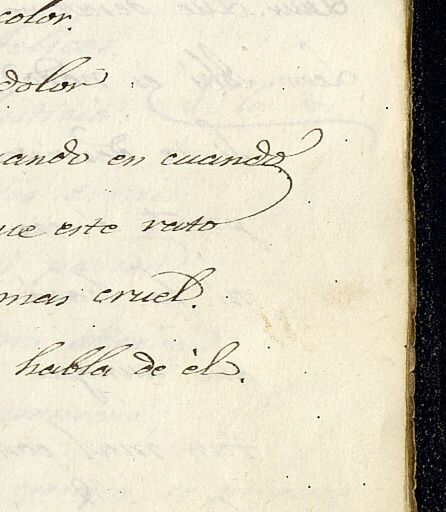 color.
dolor
uando en cuando
ue este rato
mas cruel.
habla de èl.